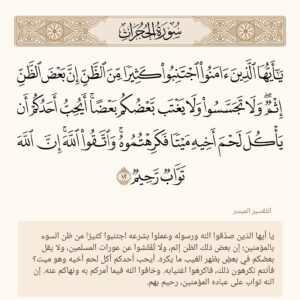 سُورَةُ الحُجُرَاتِ
يَـٰٓأَيُّهَا ٱلَّذِينَ ءَامَنُوا۟ ٱجْتَنِبُوا۟ كَثِيرًا مِّنَ ٱلظَّنِّ إِنَّ بَعْضَ ٱلظَّنِّ
إِثْمٌ ۖ وَلَا تَجَسَّسُوا۟ وَلَا يَغْتَب بَّعْضُكُم بَعْضًا ۚ أَيُحِبُّ أَحَدُكُمْ أَن
يَأْكُلَ لَحْمَ أَخِيهِ مَيْتًا فَكَرِهْتُمُوهُ ۚ وَٱتَّقُوا۟ ٱللَّهَ ۚ إِنَّ ٱللَّهَ
تَوَّابٌ رَّحِيمٌ ١٢
التفسير الميسر
يا أيها الذين صدَّقوا الله ورسوله وعملوا بشرعه اجتنبوا كثيرًا من ظن السوء
بالمؤمنين؛ إن بعض ذلك الظن إثم، ولا تُفَتِّشوا عن عورات المسلمين، ولا يقل
بعضكم في بعضٍ بظهر الغيب ما يكره. أيحب أحدكم أكل لحم أخيه وهو ميت؟
فأنتم تكرهون ذلك، فاكرهوا اغتيابه. وخافوا الله فيما أمركم به ونهاكم عنه. إن
الله تواب على عباده المؤمنين، رحيم بهم.